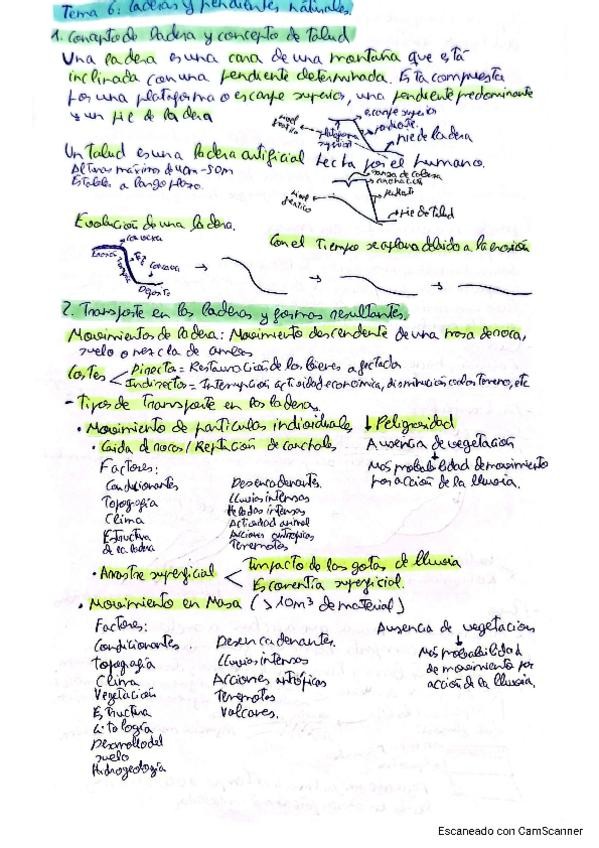 Tema 6: Laderas y pendientes naturales.
1. Concepto de ladera y concepto de Talud
Una ladera es una cara de una montaña que está
inclinada con una pendiente determinada. Esta compuesta
por una plataforma o escarpe superior, una pendiente predominante
y un pie de ladera
escarpe superior
nivel freático
plataforma superior
pendiente
pie de ladera
Un Talud es una ladera artificial hecha por el humano.
Alturas máximas de 40m-50m
Estables a largo plazo.
nivel freático
pie de Talud
Evolución de una ladera.
Con el Tiempo se aplana debido a la erosión
convexa
Erosión
Concava
Deposito
2. Transporte en las laderas y formas resultantes.
Movimientos de ladera: Movimiento descendente de una masa de roca,
suelo o mezcla de ambos
Costes
Directos = Restauración de los bienes afectados
Indirectos = Interrupción actividad económica, disminución valor terreno, etc
- Tipos de Transporte en las laderas.
• Movimiento de partículas individuales ↓ Peligrosidad
• Caida de rocas / Reptación de canchales
Ausencia de vegetación
↓
Más probabilidad de movimiento
por acción de la lluvia.
Factores:
Condicionantes
Topografía
Clima
Estructura
de la ladera
Desencadenantes
Lluvias intensas
Heladas intensas
Actividad animal
Acciones antrópicas
Terremotos
• Arrastre superficial
Impacto de las gotas de lluvia
Escorrentía superficial.
• Movimiento en Masa (>10m³ de material)
Factores:
Condicionantes
Topografía
Clima
Vegetación
Estructura
Litología
Desarrollo del
suelo
Hidrogeología
Desencadenantes
Lluvias intensas
Acciones antrópicas
Terremotos
Volcanes.
Ausencia de vegetación
↓
Más probabilidad
de movimiento por
acción de la lluvia.
Escaneado con CamScanner